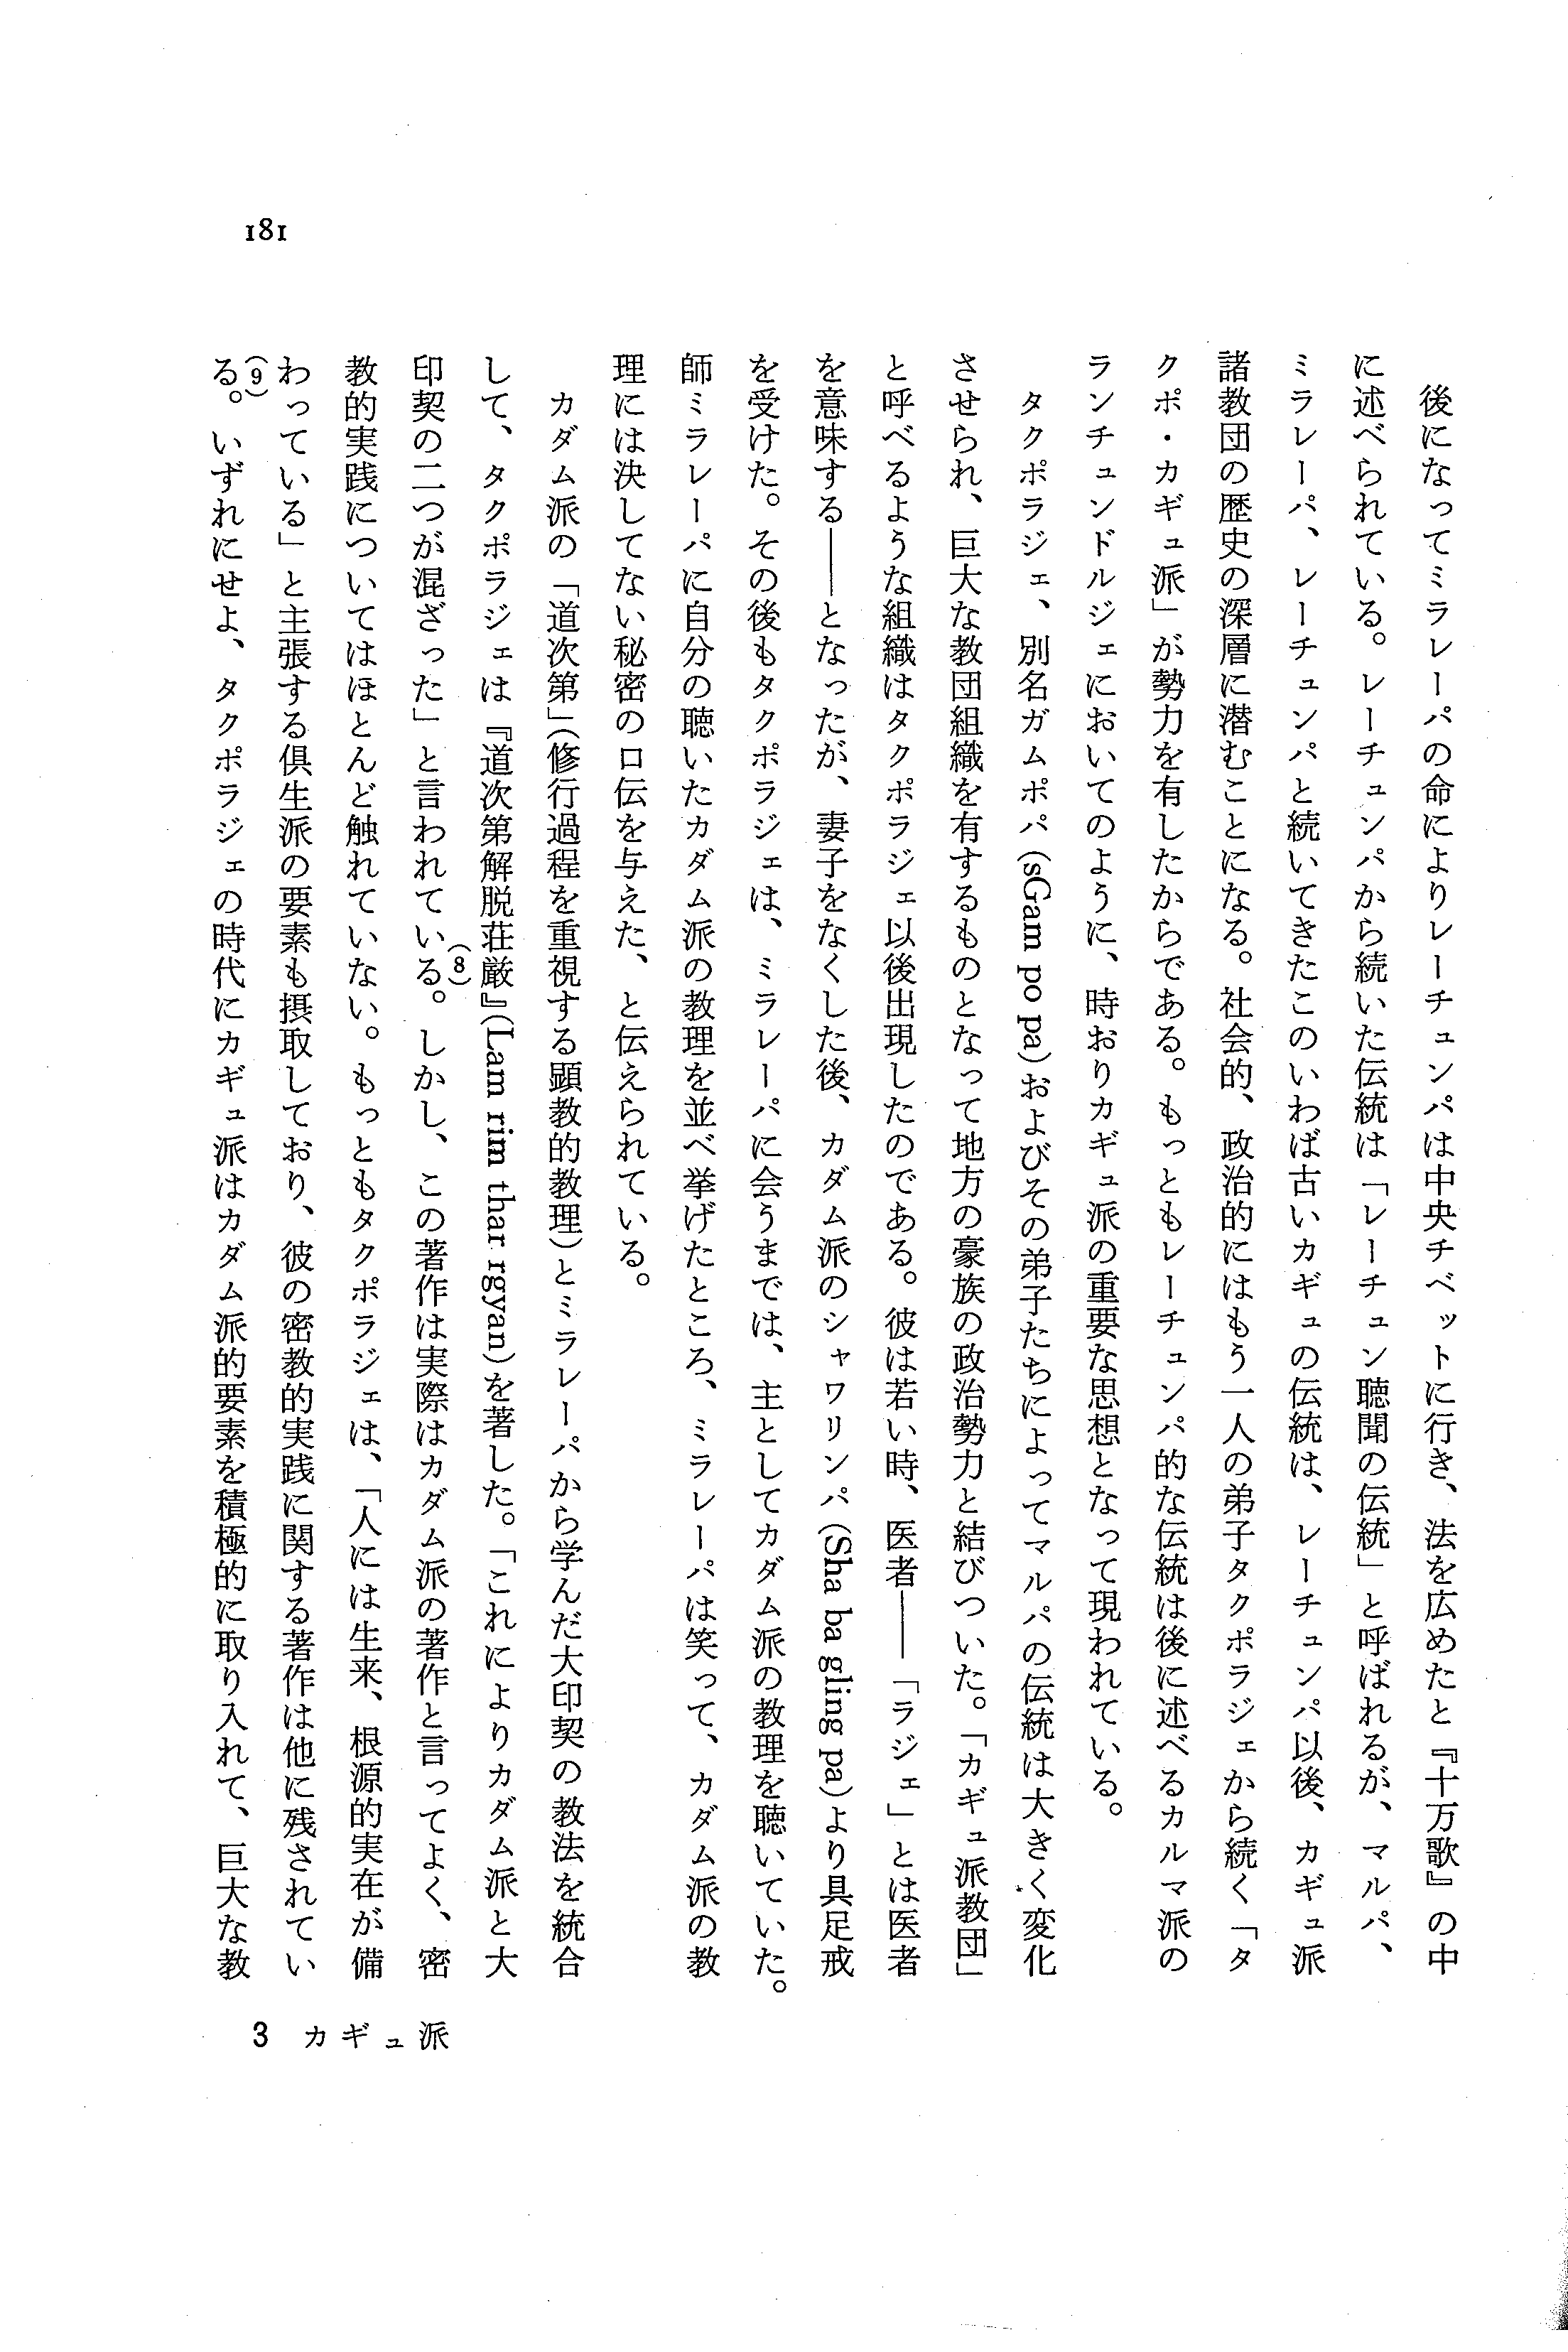 後になってミラレーパの命によりレーチュンパは中央チベットに行き、法を広めたと『十万歌』の中
に述べられている。レーチュンパから続いた伝統は「レーチュン聴聞の伝統」と呼ばれるが、マルパ、
ミラレーパ、レーチュンパと続いてきたこのいわば古いカギュの伝統は、レーチュンパ以後、カギュ派
諸教団の歴史の深層に潜むことになる。社会的、政治的にはもう一人の弟子タクポラジェから続く「タ
クポ・カギュ派」が勢力を有したからである。もっともレーチュンパ的な伝統は後に述べるカルマ派の
ランチュンドルジェにおいてのように、時おりカギュ派の重要な思想となって現われている。
タクポラジェ、別名ガムポパ(sGam po pa)およびその弟子たちによってマルパの伝統は大きく変化
させられ、巨大な教団組織を有するものとなって地方の豪族の政治勢力と結びついた。「カギュ派教団」
と呼べるような組織はタクポラジェ以後出現したのである。彼は若い時、医者――「ラジェ」とは医者
を意味する――となったが、妻子をなくした後、カダム派のシャワリンパ(Sha ba gling pa)より具足戒
を受けた。その後もタクポラジェは、ミラレーパに会うまでは、主としてカダム派の教理を聴いていた。
師ミラレーパに自分の聴いたカダム派の教理を並べ挙げたところ、ミラレーパは笑って、カダム派の教
理には決してない秘密の口伝を与えた、と伝えられている。
カダム派の「道次第」(修行過程を重視する顕教的教理)とミラレーパから学んだ大印契の教法を統合
して、タクポラジェは『道次第解脱荘厳』(Lam rim thar rgyan)を著した。「これによりカダム派と大
印契の二つが混ざった」と言われている(8)。しかし、この著作は実際はカダム派の著作と言ってよく、密
教的実践についてはほとんど触れていない。もっともタクポラジェは、「人には生来、根源的実在が備
わっている」と主張する倶生派の要素も摂取しており、彼の密教的実践に関する著作は他に残されてい
る(9)。いずれにせよ、タクポラジェの時代にカギュ派はカダム派的要素を積極的に取り入れて、巨大な教
181
3 カギュ派